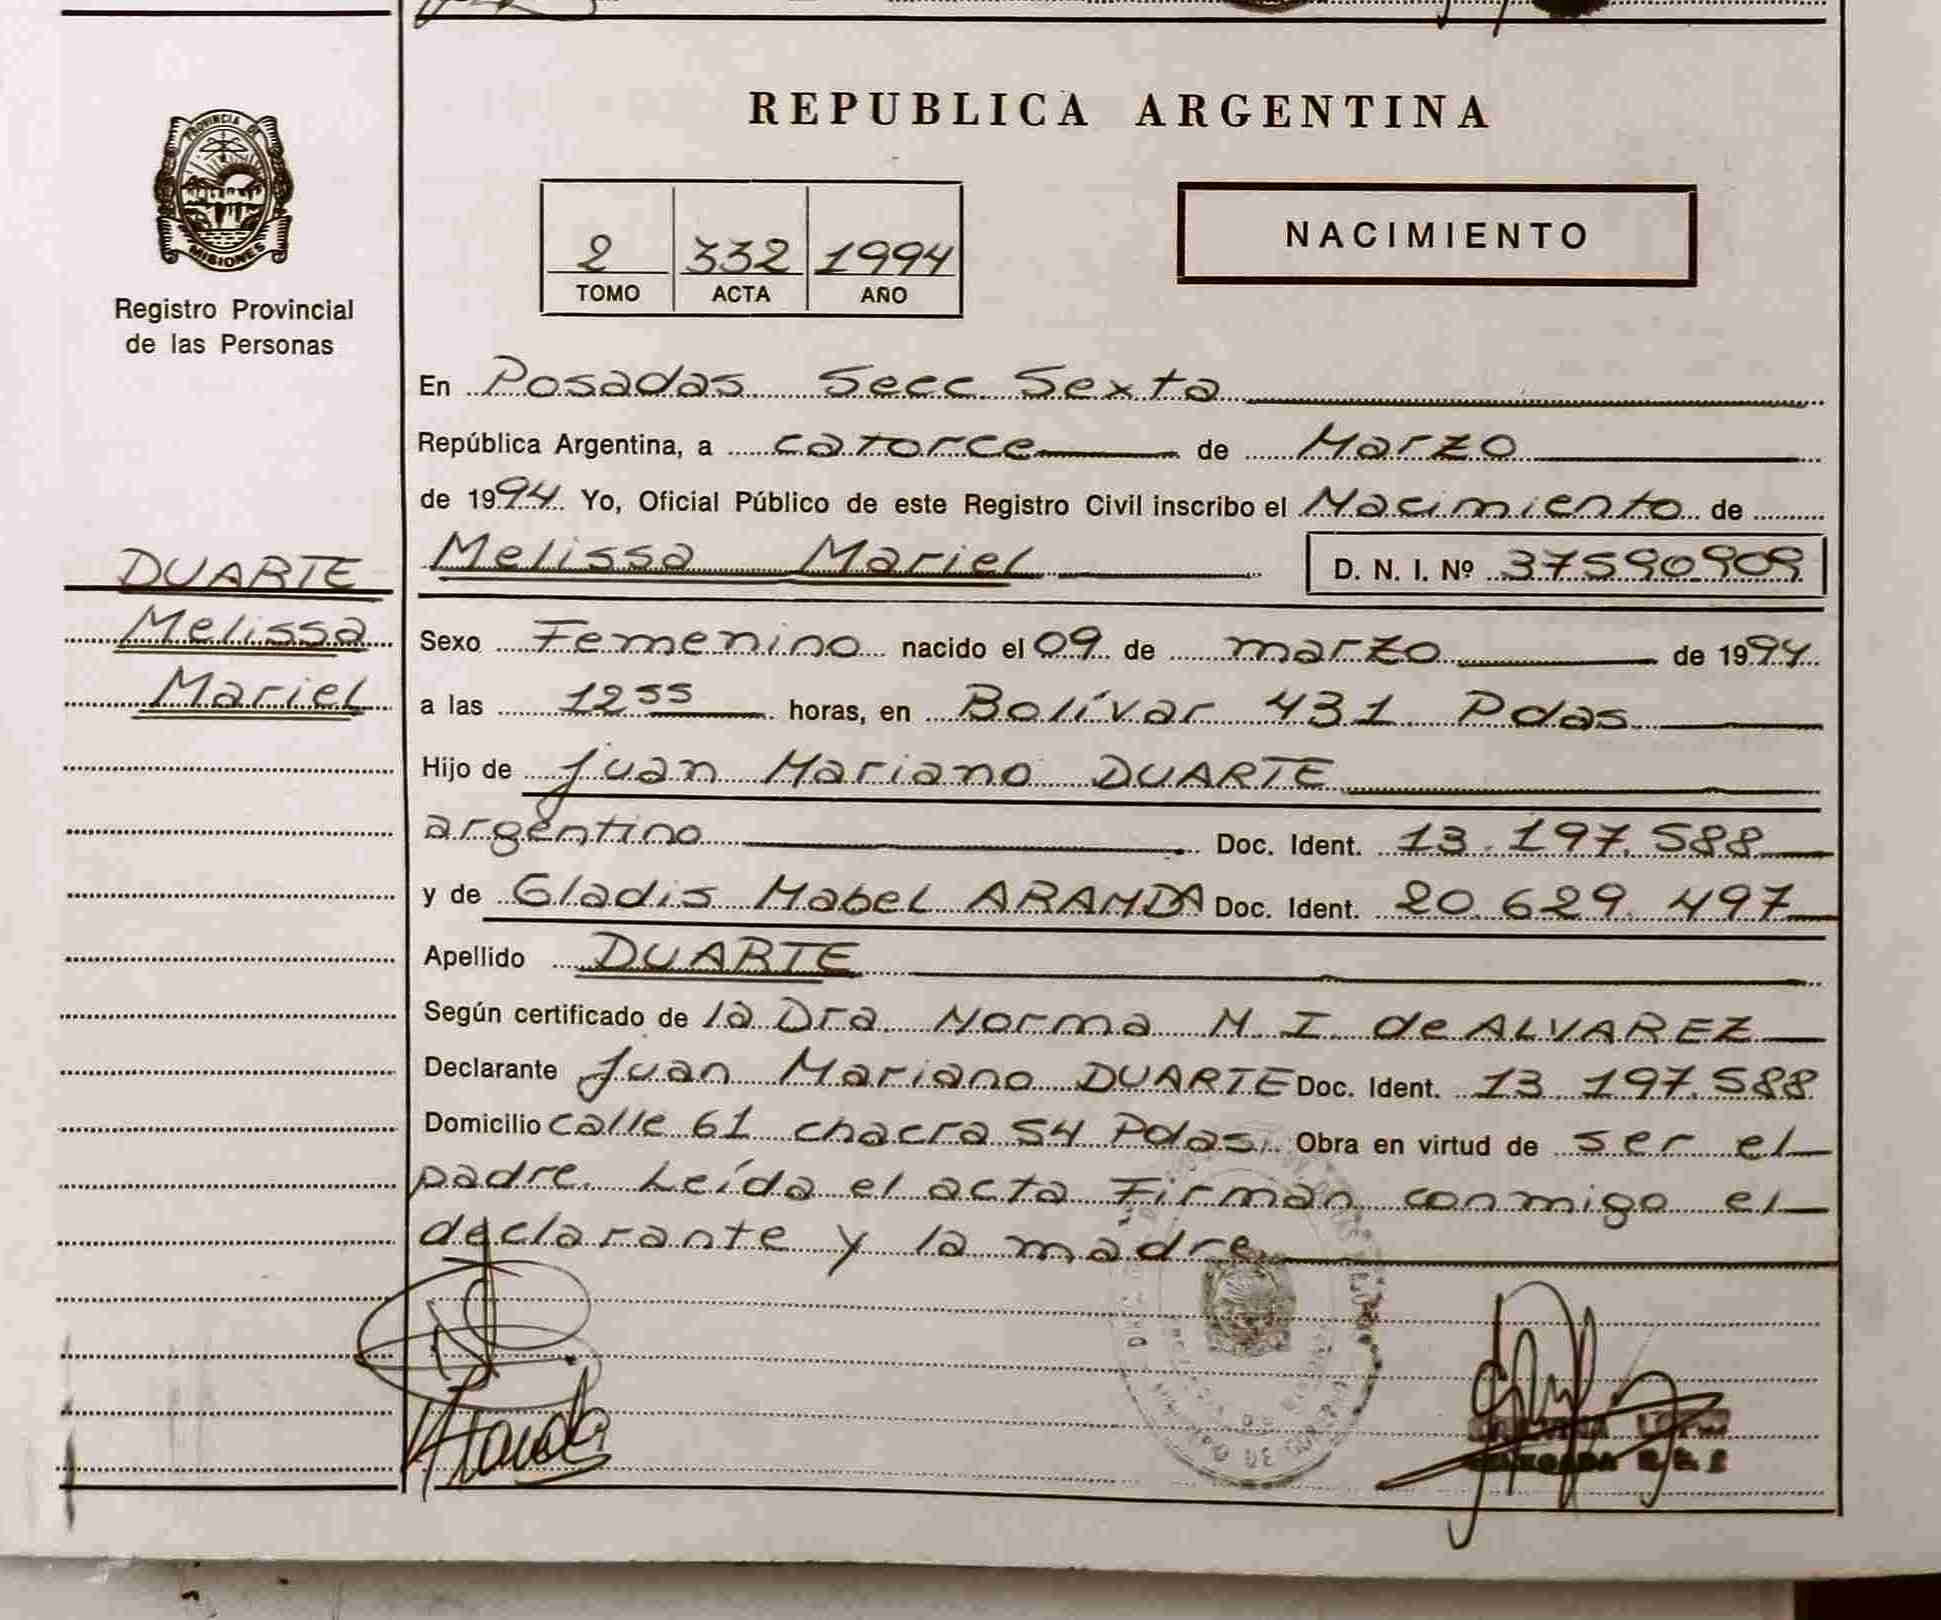 REPUBLICA ARGENTINA
PROVINCIA DE
MISIONES
Registro Provincial
de las Personas
2 332 1994
TOMO ACTA AÑO
NACIMIENTO
En Posadas Secc. Sexta
República Argentina, a catorce de Marzo
de 1994. Yo, Oficial Público de este Registro Civil inscribo el Nacimiento de
Melissa Mariel D. N. I. Nº 37590909
DUARTE
Melissa
Mariel
Sexo Femenino nacido el 09 de marzo de 1994
a las 12 55 horas, en Bolívar 431 Pdas
Hijo de Juan Mariano DUARTE
argentino Doc. Ident. 13.197.588
y de Gladis Mabel ARANDA Doc. Ident. 20.629.497
Apellido DUARTE
Según certificado de la Dra. Norma M. I. de ALVAREZ
Declarante Juan Mariano DUARTE Doc. Ident. 13.197.588
Domicilio calle 61 chacra 54 Pdas. Obra en virtud de ser el
padre. Leída el acta Firman conmigo el
declarante y la madre